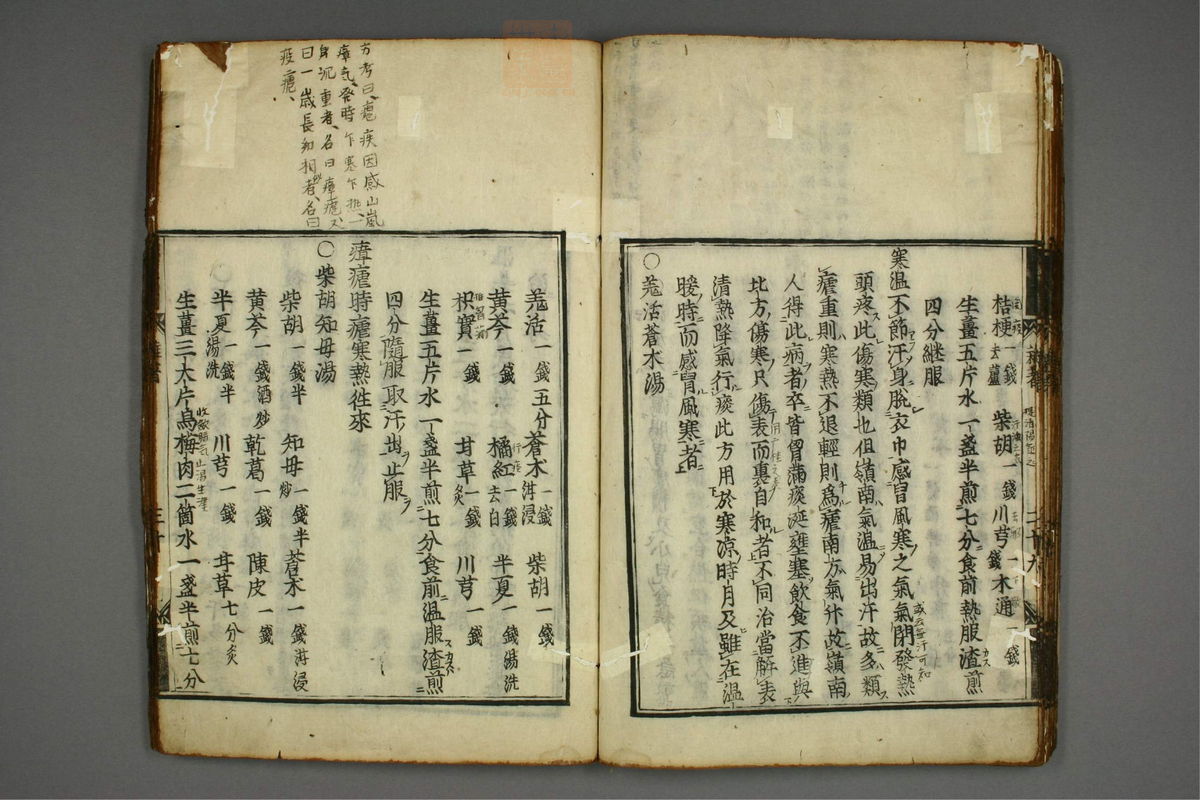 桔梗一錢去蘆 柴胡一錢 川芎一錢 木通一錢
生薑五片水一盞半煎七分食前熱服渣煎
四分継服
寒温不節汗身脱衣巾感冒風寒之氣氣閉發熱
頭疼此傷寒類也但嶺南氣温易出汗故多類
瘧重則寒熱不退輕則為瘧南方氣升故嶺南
人得此病者卒皆胃滿痰涎壅塞飲食不進與
比方傷寒只傷表而裏自和者不同治當解表
清熱降氣行痰此方用於寒凉時月及雖在温
暖時而感冒風寒者
○羗活蒼朮湯
羗活一錢五分 蒼朮一錢泔浸 柴胡一錢
黄芩一錢 橘紅一錢去白 半夏一錢湯洗
枳實一錢 甘草一錢炙 川芎一錢
生薑五片水一盞半煎七分食前温服渣煎
四分隨服取汗出止服
瘴瘧時瘧寒熱徃來
○柴胡知母湯
柴胡一錢半 知母一錢半炒 蒼朮一錢泔浸
黄芩一錢酒炒 乾葛一錢 陳皮一錢
半夏一錢半湯洗 川芎一錢 甘草七分炙
生薑三大片烏梅肉二箇水一盞半煎七分
方考曰瘧疾因感山嵐
瘴氣發時乍寒乍熱一
身沉重者名曰瘴瘧又
曰一歳長幼相似者名曰
疫瘧